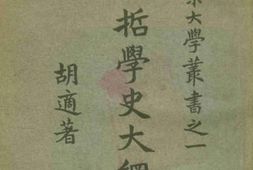 大學叢書之一
哲學史大綱
胡適著